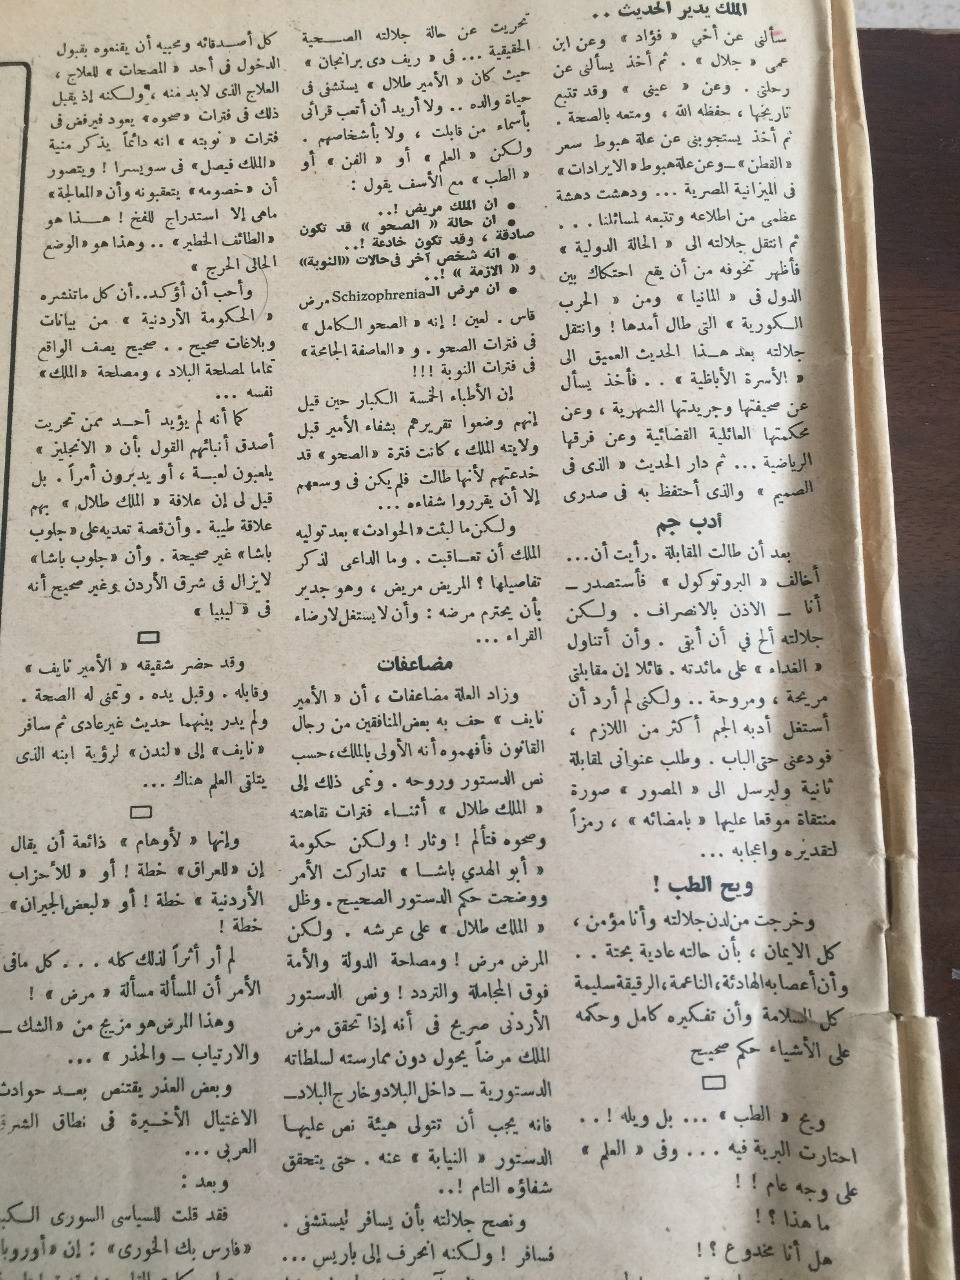 الملك يدير الحديث ..
سألنى عن أخي « فؤاد » وعن ابن
عمى « جلال » . ثم أخذ يسألنى عن
رحلتى . وعن « عينى » وقد تتبع
تاريخها ، حفظه الله ، ومتعه بالصحة .
ثم أخذ يستجوبنى عن علة هبوط سعر
« القطن » ــ وعن علة هبوط « الايرادات »
فى الميزانية المصرية ... ودهشت دهشة
عظمى من اطلاعه وتتبعه لمسائلنا ...
ثم انتقل جلالته الى « الحالة الدولية »
فأظهر تخوفه من أن يقع احتكاك بين
الدول فى « المانيا » ومن « الحرب
الكورية » التى طال أمدها ! وانتقل
جلالته بعد هذا الحديث العميق الى
« الأسرة الأباظية » .. فأخذ يسأل
عن صحيفتها وجريدتها الشهرية ، وعن
محكمتها العائلية القضائية وعن فرقها
الرياضية ... ثم دار الحديث « الذى فى
الصميم » والذى أحتفظ به فى صدرى
أدب جم
بعد أن طالت المقابلة . رأيت أن ...
أخالف « البروتوكول » فأستصدر ــ
أنا ــ الاذن بالانصراف . ولكن
جلالته ألح في أن أبقى . وأن أتناول
« الغداء » على مائدته . قائلا إن مقابلتى
مريحة ، ومروحة .. ولكنى لم أرد أن
أستغل أدبه الجم أكثر من اللازم ،
فودعنى حتى الباب . وطلب عنوانى لمقابلة
ثانية وليرسل الى « المصور » صورة
منتقاة موقعا عليها « بامضائه » ، رمزاً
لتقديره واعجابه ...
ويح الطب !
وخرجت من لدن جلالته وأنا مؤمن ،
كل الايمان ، بأن حالته عادية بحتة ..
وأن أعصابه الهادئة ، الناعمة ، الرقيقة سليمة
كل السلامة وأن تفكيره كامل وحكمه
على الأشياء حكم صحيح
ويح « الطب » ... بل ويله ! ..
احتارت البرية فيه ... وفى « العلم »
على وجه عام ! !
ما هذا ؟ !
هل أنا مخدوع ؟ !
تحريت عن حالة جلالته الصحية
الحقيقية ... فى « ريف دى برانجان »
حيث كان « الأمير طلال » يستشفى فى
حياة والده .. ولا أريد أن أتعب قرائى
بأسماء من قابلت ، ولا بأشخاصهم .
ولكن « العلم » أو « الفن » أو
« الطب » مع الأسف يقول :
● ان الملك مريض !..
● ان حالة « الصحو » قد تكون
صادقة ، وقد تكون خادعة !..
● انه شخص آخر فى حالات « النوبة »
و « الازمة » !..
● ان مرض الـ Schizophrenia مرض
قاس . لعين ! إنه « الصحو الكامل »
فى فترات الصحو . و « العاصفة الجامحة »
فى فترات النوبة !!!
إن الأطباء الخمسة الكبار حين قيل
إنهم وضعوا تقريرهم بشفاء الأمير قبل
ولايته الملك ، كانت فترة « الصحو » قد
خدعتهم لأنها طالت فلم يكن فى وسعهم
إلا أن يقرروا شفاءه ...
ولكن ما لبثت « الحوادث » بعد توليه
الملك أن تعاقبت . وما الداعى لذكر
تفاصيلها ؟ المريض مريض ، وهو جدير
بأن يحترم مرضه : وأن لا يستغل لارضاء
القراء ...
مضاعفات
وزاد العلة مضاعفات ، أن « الأمير
نايف » حف به بعض المنافقين من رجال
القانون فأفهموه أنه الأولى بالملك ، حسب
نص الدستور وروحه . ونمى ذلك إلى
« الملك طلال » أثناء فترات نقاهته
وصحوه فتألم ! وثار ! ولكن حكومة
« أبو الهدي باشا » تداركت الأمر
ووضحت حكم الدستور الصحيح . وظل
« الملك طلال » على عرشه . ولكن
المرض مرض ! ومصلحة الدولة والأمة
فوق المجاملة والتردد ! ونص الدستور
الأردنى صريح فى أنه إذا تحقق مرض
الملك مرضاً يحول دون ممارسته لسلطاته
الدستورية ــ داخل البلاد وخارج البلاد ــ
فانه يجب أن تتولى هيئة نص عليها
الدستور « النيابة » عنه . حتى يتحقق
شفاؤه التام !..
ونصح جلالته بأن يسافر ليستشفى .
فسافر ! ولكنه انحرف إلى باريس ...
كل أصدقائه ومحبيه أن يقنعوه بقبول
الدخول فى أحد « المصحات » للعلاج ،
العلاج الذى لابد منه ، ولكنه إذ يقبل
ذلك فى فترات « صحوه » يعود فيرفض فى
فترات « نوبته » انه دائماً يذكر منية
« الملك فيصل » فى سويسرا ! ويتصور
أن « خصومه » يتعقبونه وأن « المعالجة »
ماهى إلا استدراج للفخ ! هذا هو
« الطائف الخطير » .. وهذا هو « الوضع
الحالى الحرج »
وأحب أن أؤكد .. أن كل ماتنشره
« الحكومة الأردنية » من بيانات
وبلاغات صحيح .. صحيح يصف الواقع
تماما لمصلحة البلاد ، ومصلحة « الملك »
نفسه ...
كما أنه لم يؤيد أحد ممن تحريت
أصدق أنبائهم القول بأن « الانجليز »
يلعبون لعبة ، أو يدبرون أمراً . بل
قيل لى إن علاقة « الملك طلال » بهم
علاقة طيبة . وأن قصة تعديه على « جلوب
باشا » غير صحيحة . وأن « جلوب باشا »
لايزال فى شرق الأردن وغير صحيح أنه
فى « ليبيا »
وقد حضر شقيقه « الأمير نايف »
وقابله . وقبل يده . وتمنى له الصحة .
ولم يدر بينهما حديث غير عادى ثم سافر
« نايف » إلى « لندن » لرؤية ابنه الذى
يتلقى العلم هناك ...
وإنها « لأوهام » ذائعة أن يقال
إن « للعراق » خطة ! أو « للأحزاب
الأردنية » خطة ! أو « لبعض الجيران »
خطة !
لم أر أثراً لذلك كله ... كل مافى
الأمر أن المسألة مسألة « مرض » !
وهذا المرض هو مزيج من « الشك ــ
والارتياب ــ والحذر » ...
وبعض العذر يقتنص بعد حوادث
الاغتيال الأخيرة فى نطاق الشرق
العربى ...
وبعد :
فقد قلت للسياسى السورى الكبير
« فارس بك الخورى » : إن « أوروبا